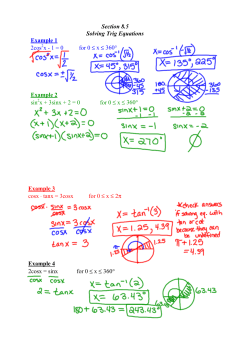 Section 8.5
Solving Trig Equations
Example 1
2cos²x - 1 = 0 for 0 ≤ x ≤ 360°
√cos²x = √1/2
cosx = ± √1/2
x = cos⁻¹(√1/2)
x = 45°, 315°
x = cos⁻¹(-√1/2)
x = 135°, 225°
360
-45
315
180
+45
Example 2
sin²x + 3sinx + 2 = 0 for 0 ≤ x ≤ 360°
x² + 3x + 2 = 0
(x+1)(x+2) = 0
(sinx+1)(sinx+2) = 0
sinx+1=0
sinx = -1
x = 270°
sinx+2=0
-2 -2
sinx = -2
Example 3
cosx · tanx = 3cosx for 0 ≤ x ≤ 2π
cosx · sinx = 3cosx
cosx
sinx = 3cosx
cosx cosx
tanx = 3
x = tan⁻¹(3)
x = 1.25, 4.39
1.25
*check answers
if solving eq. with
tan or cot
because they can
be undefined
π+1.25
= 4.39
Example 4
2cosx = sinx for 0 ≤ x ≤ 360°
cosx cosx
2 = tanx
x = tan⁻¹(2)
x = 63.43°
180 + 63.43 = 243.43°
63.43